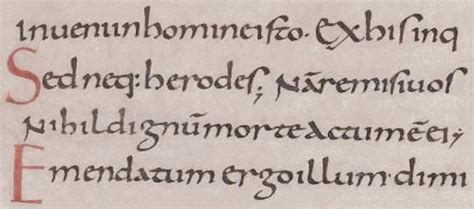 Inuenunhomineisto. Exhisinq
Sedneq: herodes; Nãremisiuos
Nihildignũmorteactumẽei;
Emendatum ergo illum. dimi